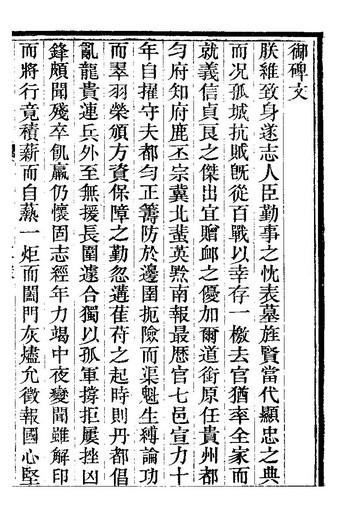 御碑文
朕維致身遂志人臣勤事之忱表墓旌賢當代顯忠之典
而况孤城抗賊既從百戰以幸存一檄去官猶率全家而
就義信貞良之傑出宜贈卹之優加爾道銜原任貴州都
勻府知府鹿丕宗冀北蜚英黔南報最歷官七邑宣力十
年自擢守夫都勻正籌防於邊圉扼險而渠魁生縛論功
而翠羽榮頒方資保障之勤忽遘萑苻之起時則丹都倡
亂龍貴連兵外至無援長圍遽合獨以孤軍撐拒屢挫凶
鋒頗聞殘卒飢羸仍懷固志經年力竭中夜變聞雖解印
而將行竟積薪而自爇一炬而闔門灰燼允徵報國心堅